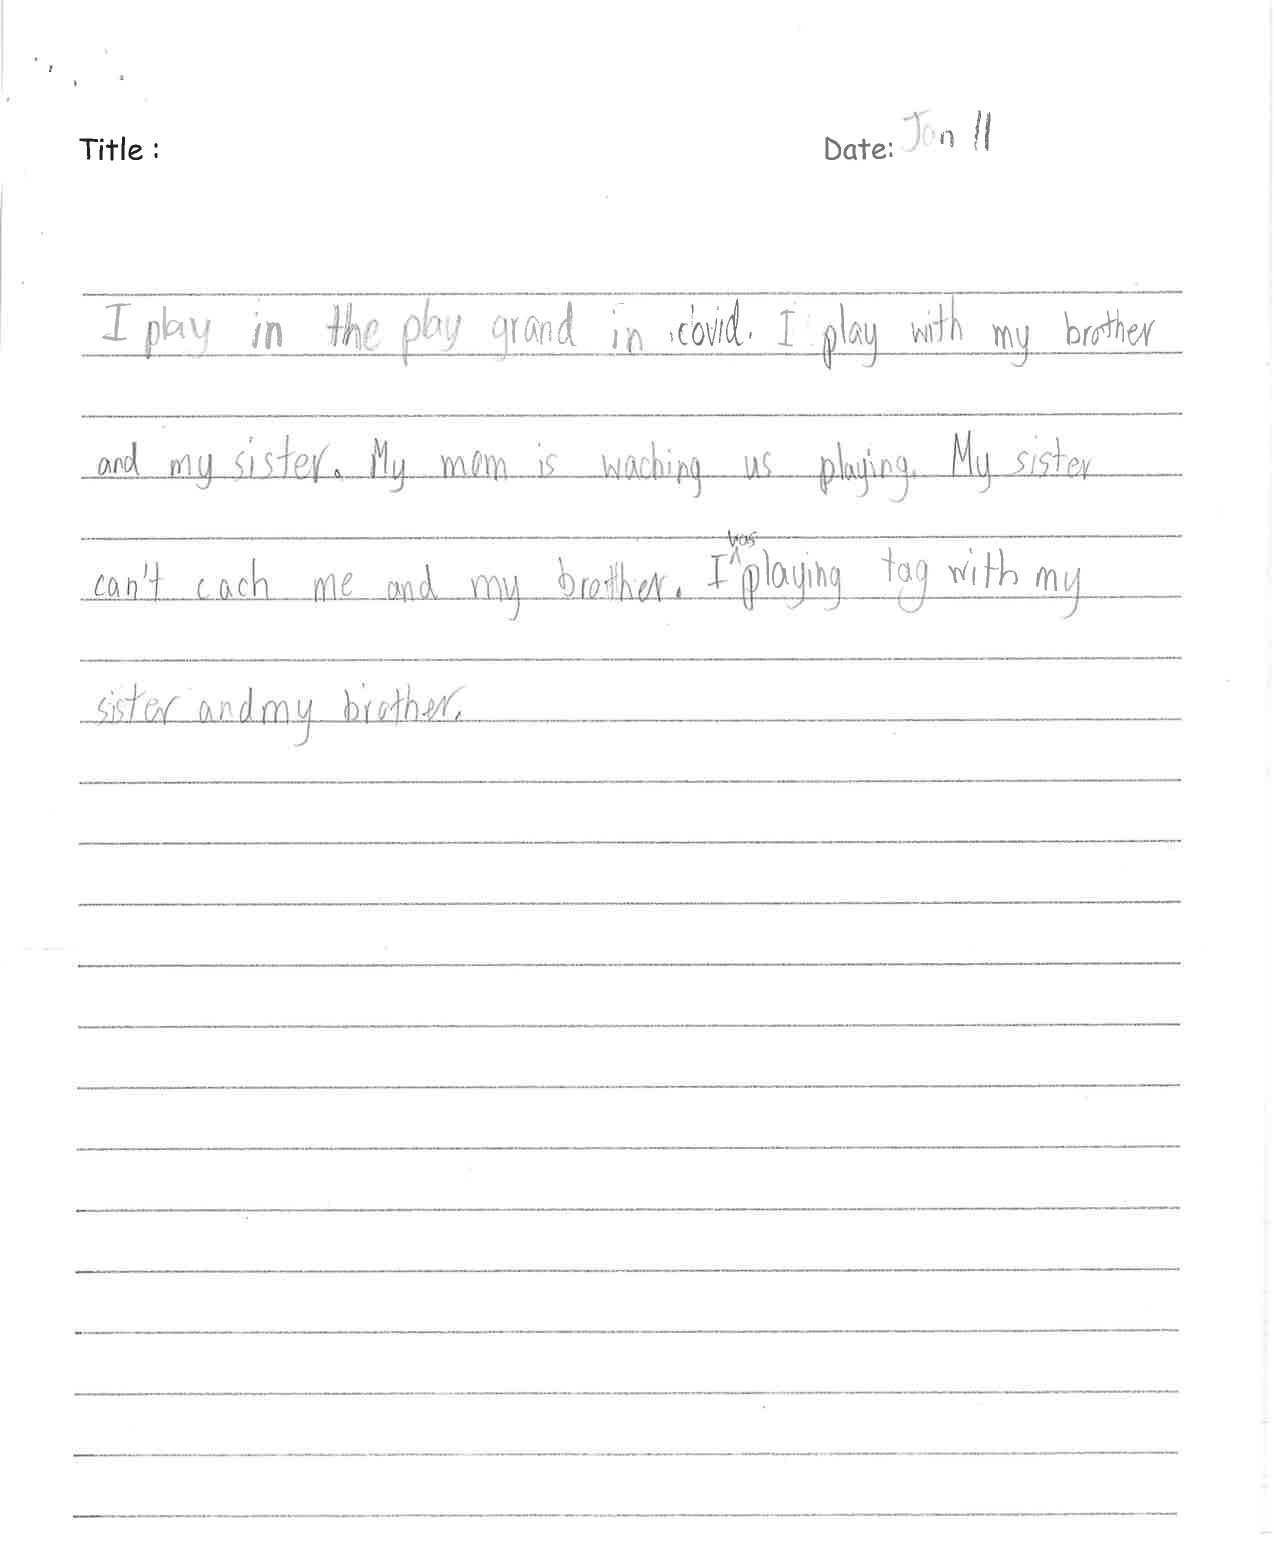 Title :
Date: Jan 11
I play in the play grand in covid. I play with my brother
and my sister. My mom is waching us playing. My sister
can't cach me and my brother. I was playing tag with my
sister and my brother.